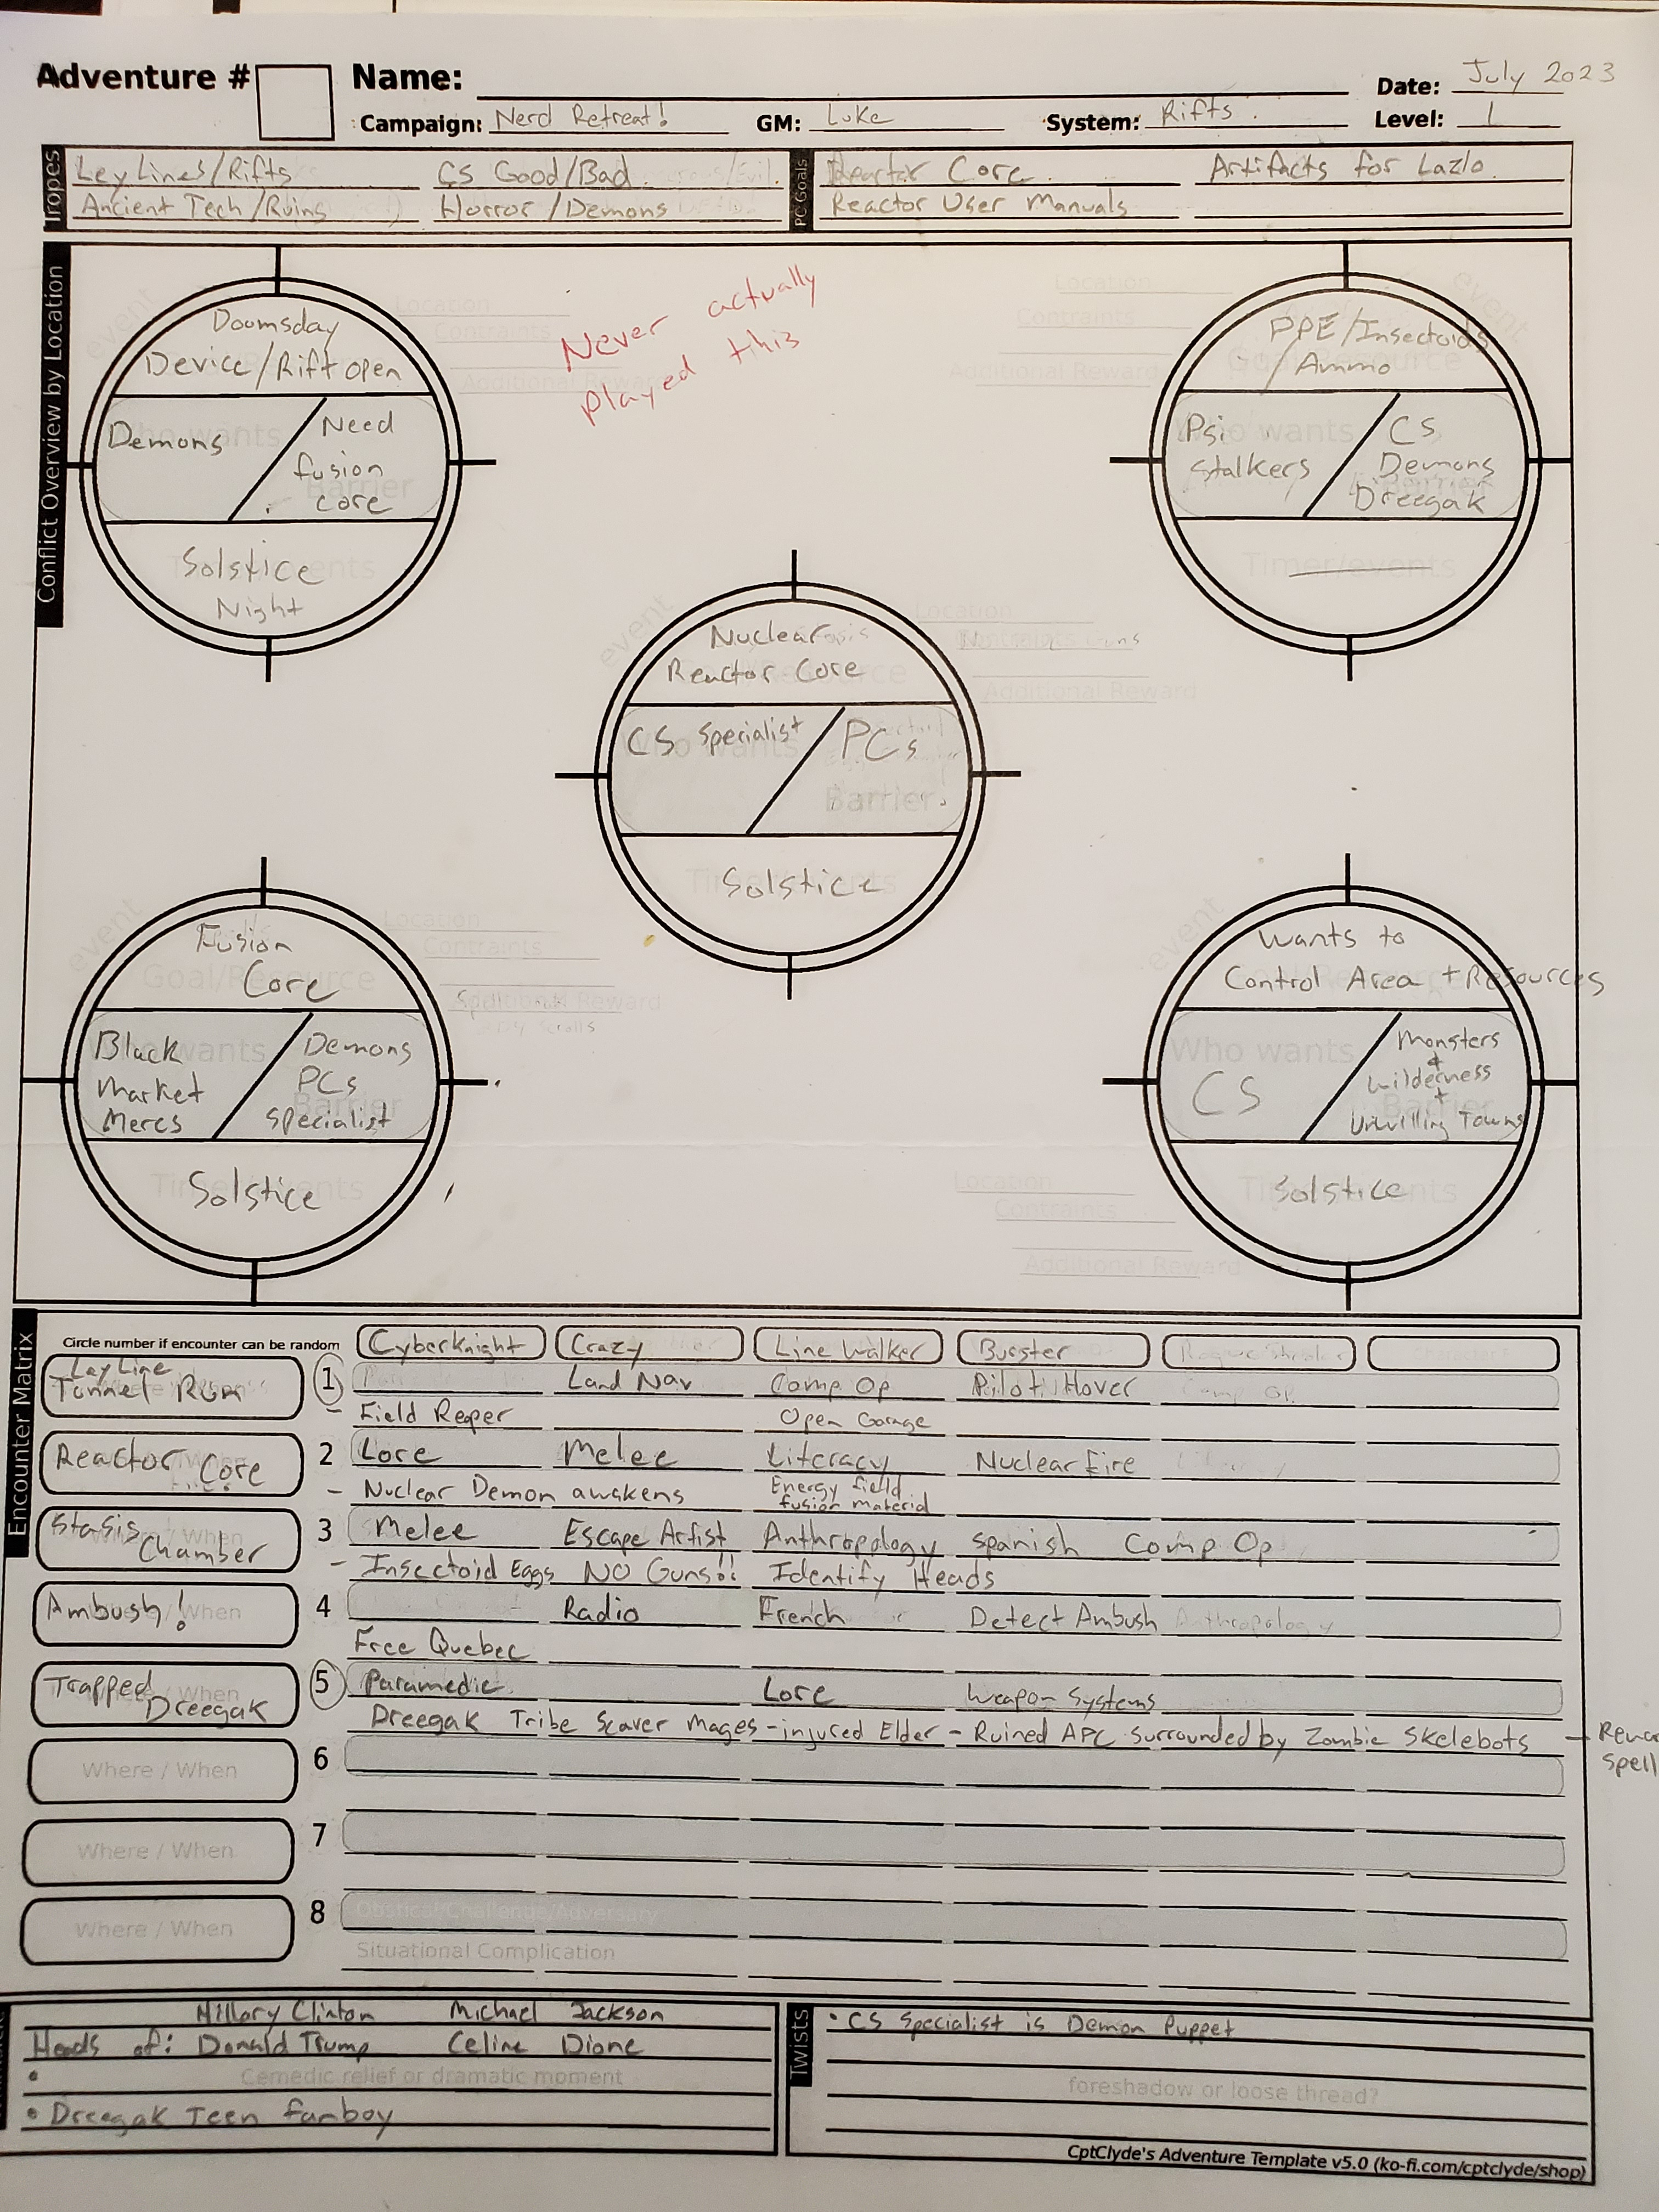 Adventure # Name:
Date: July 2023
Campaign: Nerd Retreat! GM: Luke System: Rifts Level: 1
Tropes
Ley Lines/Rifts CS Good/Bad
Ancient Tech/Ruins Horror/Demons
PC Goals
Reactor Core Artifacts for Lazlo
Reactor User Manuals
Conflict Overview by Location
Never actually
played this
Doomsday
Device/Rift open
Demons
Need
fusion
core
Solstice
Night
event
Location
Contraints
Additional Reward
PPE/Insectoids
/Ammo
Psi
Stalkers
CS
Demons
Dreegak
Timer/events
Nuclear
Reactor Core
CS Specialist
PCs
Barrier
Solstice
event
Location
Contraints
Additional Reward
Fusion
Core
Goal/Resource
Black
Market
Mercs
Demons
PCs
Specialist
Solstice
event
Location
Contraints
Additional Reward
Wants to
Control Area + Resources
Who wants
CS
Monsters
+
Wilderness
+
Unwilling Towns
Solstice
Location
Contraints
Additional Reward
Encounter Matrix
Circle number if encounter can be random
Cyberknight Crazy Line Walker Burster
Ley Line
Tunnel Run
1 Land Nav Comp Op Pilot Hover
- Field Reaper Open Garage
Reactor Core
2 Lore Melee Literacy Nuclear Fire
- Nuclear Demon awakens Energy field
fusion material
Stasis
Chamber
3 Melee Escape Artist Anthropology Spanish Comp Op
- Insectoid Eggs NO Guns!! Identify Heads
Ambush!
4 Radio French Detect Ambush Anthropology
Free Quebec
Trapped
Dreegak
5 Paramedic Lore Weapon Systems
Dreegak Tribe Scaver Mages - injured Elder - Ruined APC surrounded by Zombie Skelebots
Where / When 6
Where / When 7
Where / When 8 Obstical/Challenge/Adversary
Situational Complication
Hillary Clinton Michael Jackson
Heads of: Donald Trump Celine Dione
• Cemedic relief or dramatic moment
• Dreegak Teen fanboy
Twists
• CS Specialist is Demon Puppet
foreshadow or loose thread?
CptClyde's Adventure Template v5.0 (ko-fi.com/cptclyde/shop)